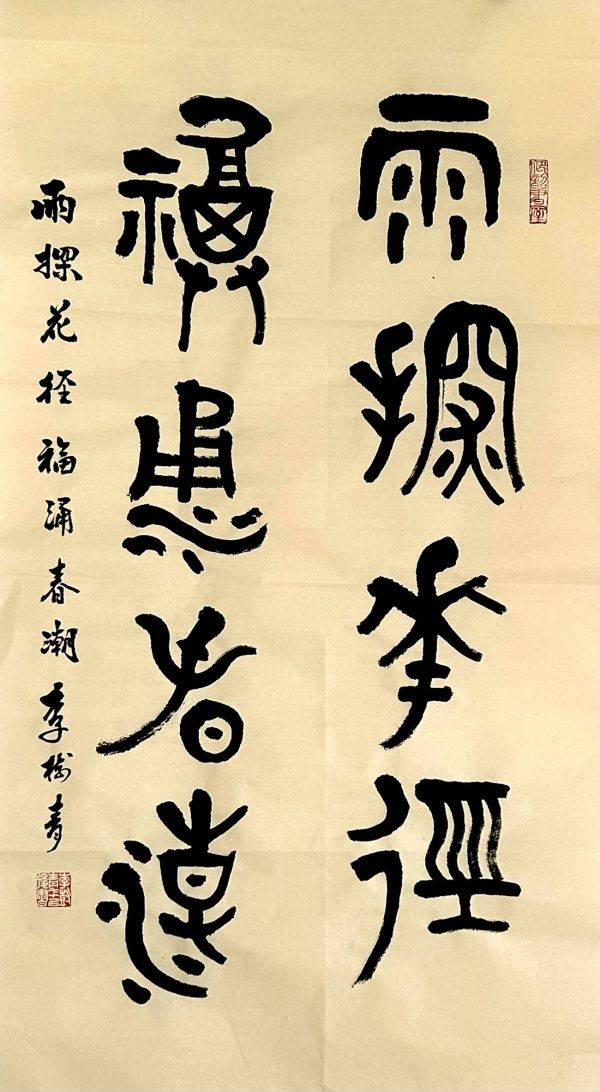 雨探花径
福涌春潮
雨探花径福涌春潮李树青